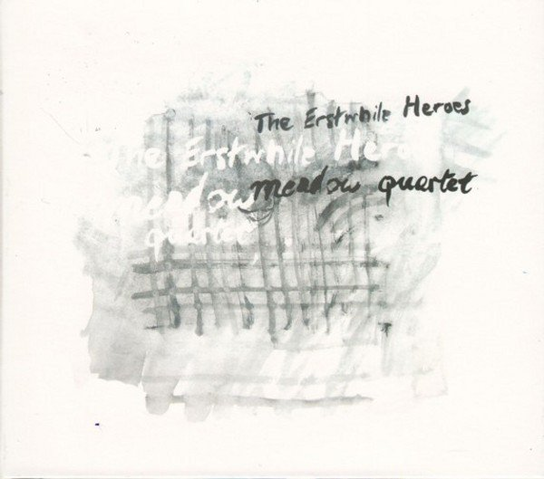 The Erstwhile Heroes
The Erstwhile Hero
meadow quartet
meadow
quartet